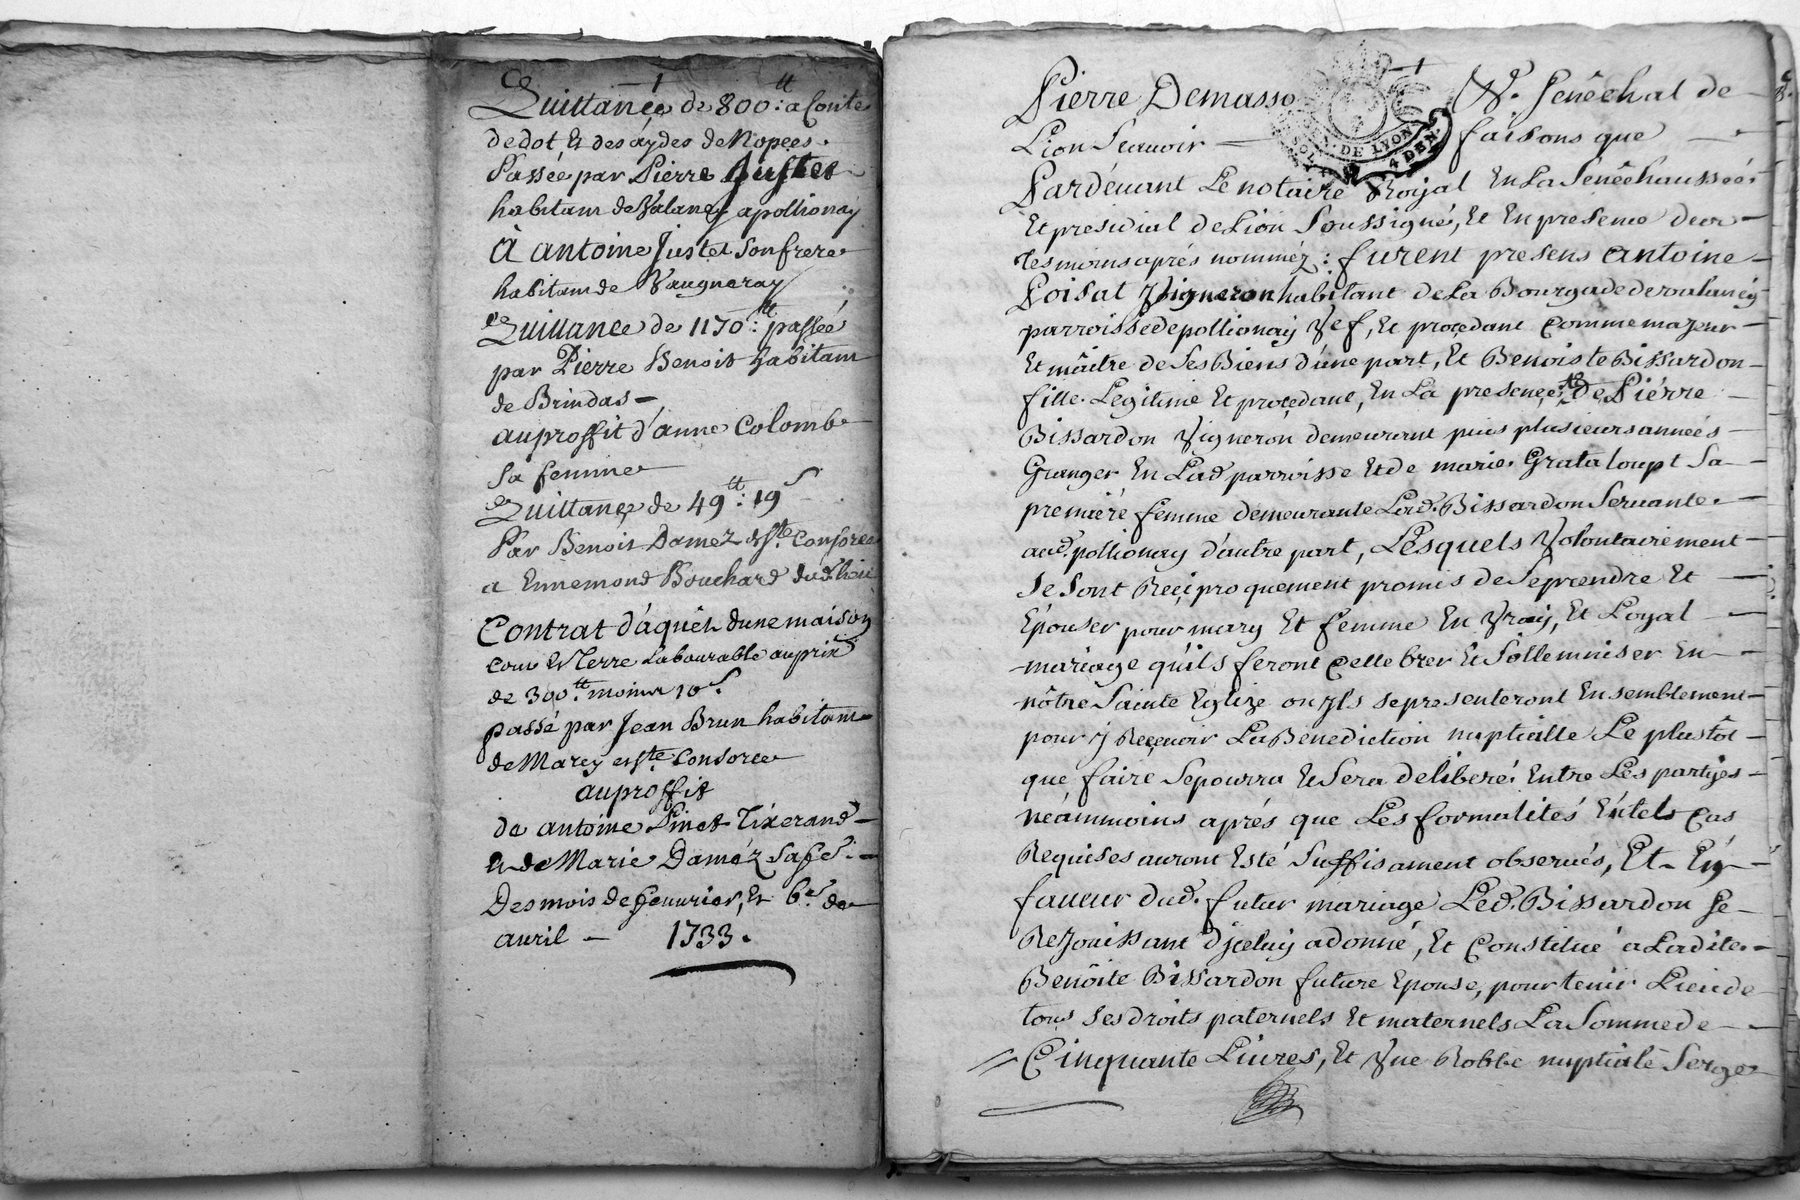 Quittancce de 800:ᵗᵗ a Conte
de dot Et des aydes de Nopces.
Passée par Pierre Justet
habitant de Valancy apollionay
À antoine Justet Son frere
habitant de Vaugneray
Quittance de 1170:ᵗᵗ passée
par Pierre Benoit habitant
de Brindas —
auproffit d'anne Colombe
Sa femme
Quittance de 49ᵗᵗ: 19ˢ
Par Benoit Damez Consorce
a Ennemond Bouchard dud. lieu
Contrat d'aquêt dune maison
cour Et Terre Labourable au prix
de 300ᵗᵗ. moins 10ˢ.
passé par Jean Brun habitant
de Marcy Consorce
auproffit
de antoine Pinet Tixerand —
Et de Marie Daméz Sa fe. —
Des mois de feuurier, Et 6.ᵉ de
auril — 1733.
Pierre Demasso Sénêchal de —
Lion Scauoir — faisons que —
SOL. GN. DE LYON 4 DEN.
Pardéuant Le notaire Royal En La Sénêchaussée
Et presidial de Lion Soussigné, Et En presence des —
tésmoins aprés nommez: furent presens antoine —
Poisat Vigneron habitant de La Bourgade de valancy
parroisse de pollionay Vef, Et procedant Comme majeur —
Et mâitre de Ses Biens d'une part, Et Benoiste Bissardon —
fille Legitime Et procedant, En La presence de Piérre —
Bissardon Vigneron demeurant puis plusieurs années —
Granger En Lad. parroisse Et de marie Grataloupt Sa —
premiéré femme demeurante Lad. Bissardon Seruante. —
aud. pollionay d'autre part, Lesquels Volontairement —
Se Sont Reciproquement promis de Se prendre Et —
Epouser pour mary Et femme En Vray, Et Loyal —
mariage qu'ils feront Cellebrer Et Sollemniser En —
nôtre Sainte Eglize ou yls se presenteront Ensemblement —
pour y Reçeuoir La Bénediction nuptialle Le plustôt —
que faire Se pourra Et Sera deliberé Entre Les partyes —
néammoins aprés que Les formalités En tels Cas
Requises auront Esté Suffisament obserués, Et En —
faueur dud. futur mariage Led. Bissardon Se —
Rejouissant d'jceluy a donné, Et Constitué a Ladite —
Benôite Bissardon future Epouse, pour tenir Lieu de —
tous Ses droits paternels Et maternels La Somme de —
Cinquante Liures, Et Vne Robbe nuptiale Serge